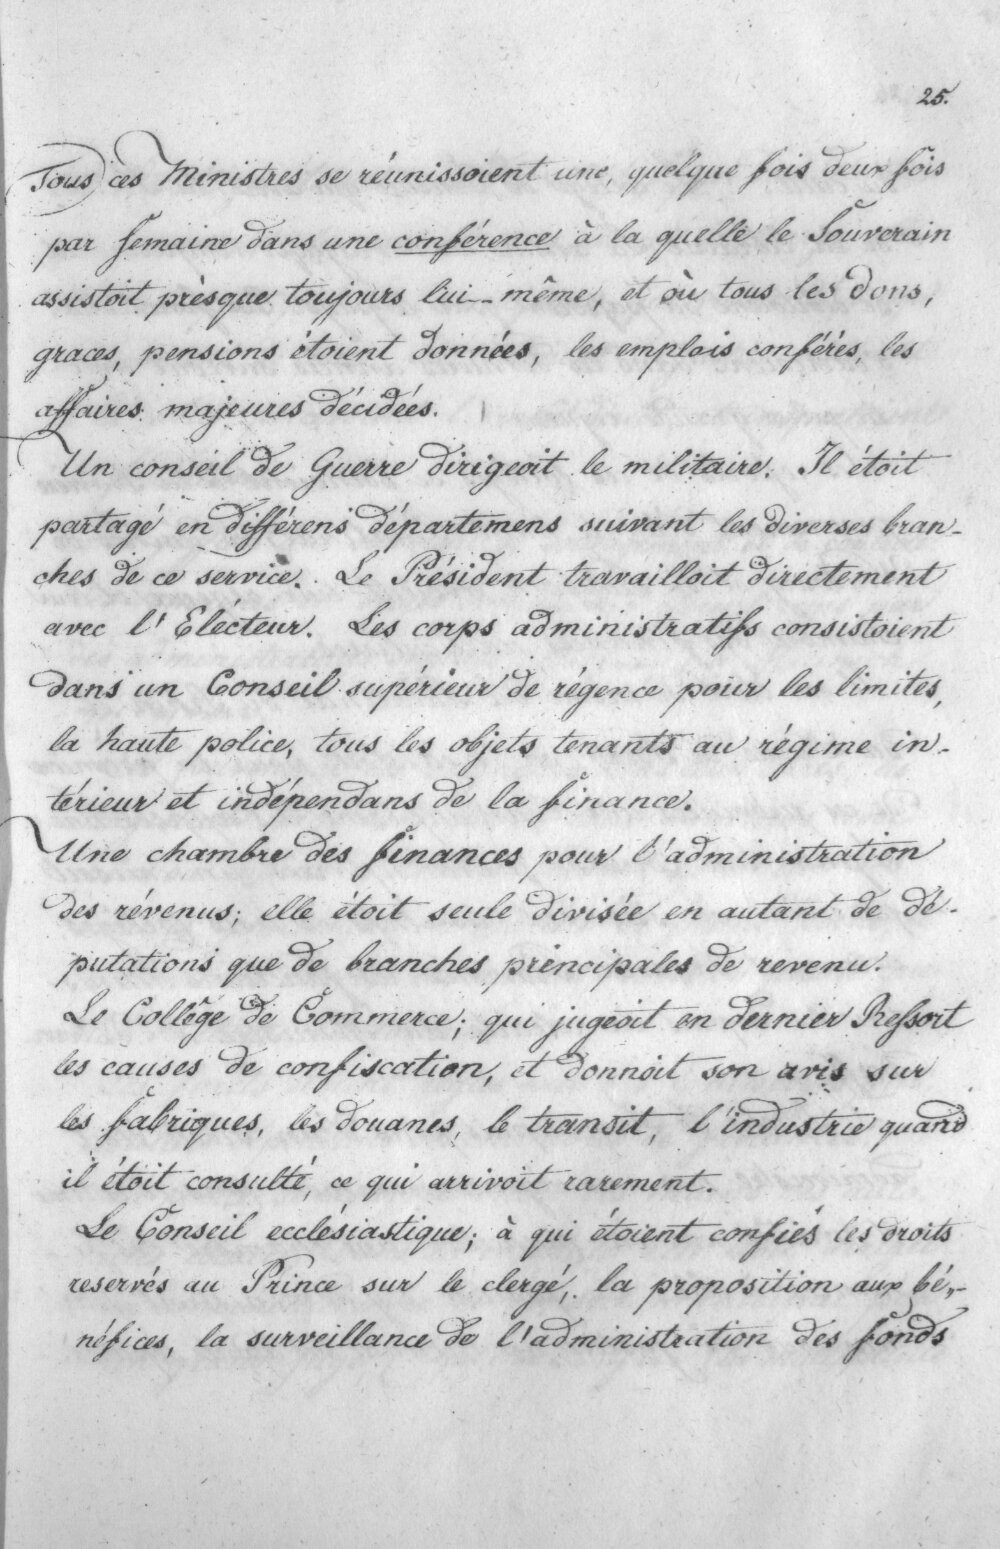 25.
Tous ces Ministres se réunissoient une, quelque fois deux fois
par semaine dans une conférence à la quelle le Souverain
assistoit prèsque toujours lui-même, et où tous les dons,
graces, pensions étoient données, les emplois conférés, les
affaires majeures décidées.
Un conseil de Guerre dirigeoit le militaire. Il étoit
partagé en différens départemens suivant les diverses bran-
ches de ce service. Le Président travailloit directement
avec l'Elécteur. Les corps administratifs consistoient
dans un Conseil supérieur de régence pour les limites,
la haute police, tous les objets tenants au régime in-
térieur et indépendans de la finance.
Une chambre des finances pour l'administration
des révenus; elle étoit seule divisée en autant de dé-
putations que de branches principales de revenu.
Le Collège de Commerce; qui jugeoit en dernier Ressort
les causes de confiscation, et donnoit son avis sur
les fabriques, les douanes, le transit, l'industrie quand
il étoit consulté, ce qui arrivoit rarement.
Le Conseil ecclésiastique; à qui étoient confiés les droits
reservés au Prince sur le clergé, la proposition aux bé-
néfices, la surveillance de l'administration des fonds